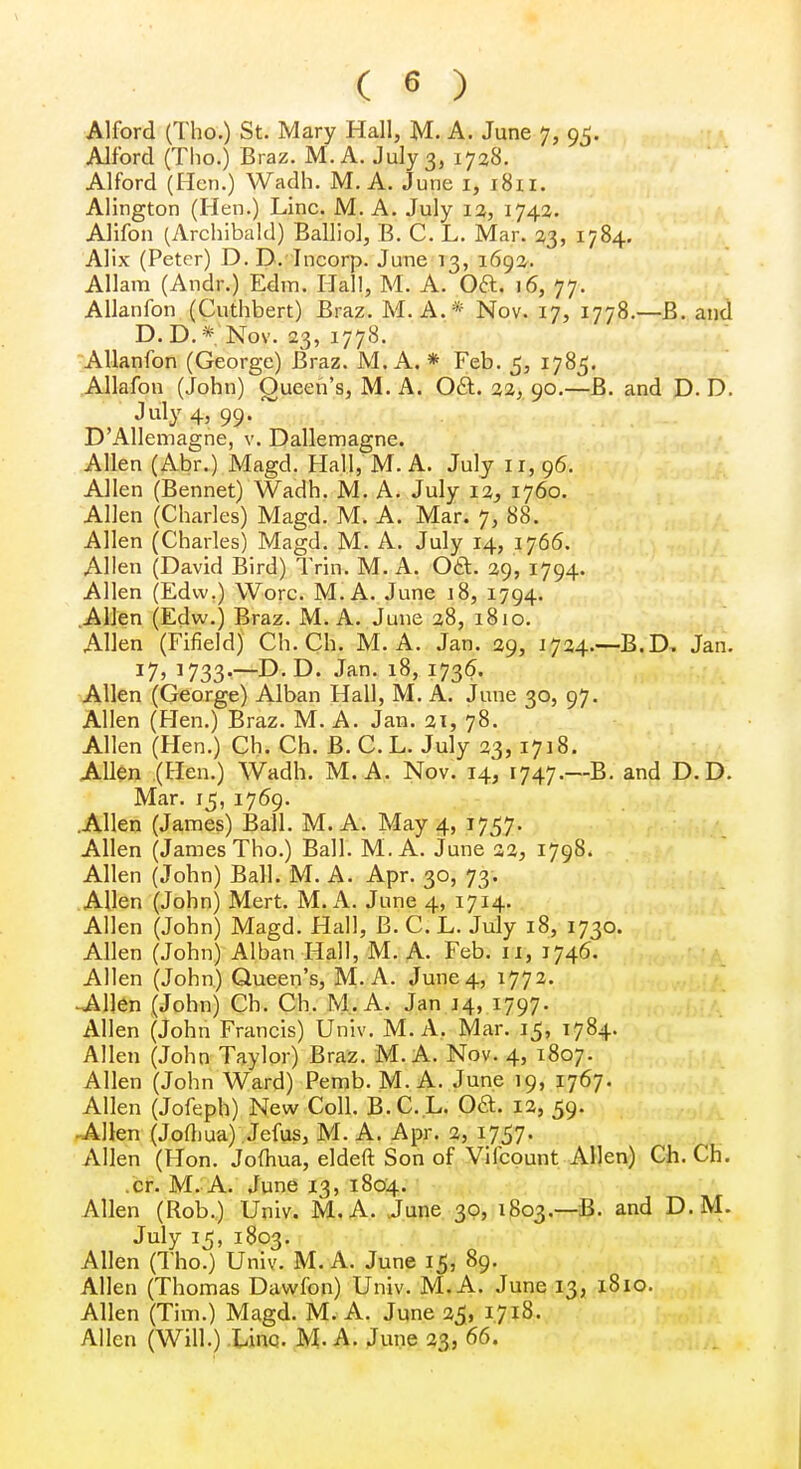 ( 6 )
Alford (Tho.) St. Mary Hall, M. A. June 7, 95.
Alford (Tho.) Braz. M. A. July 3, 1728.
Alford (Hen.) Wadh. M. A. June 1, 1811.
Alington (Hen.) Linc. M. A. July 12, 1742.
Aliſon (Archibald) Balliol, B. C. L. Mar. 23, 1784.
Alix (Peter) D. D. Incorp. June 13, 1692.
Allam (Andr.) Edm. Hall, M. A. Oct. 16, 77.
Allanſon (Cuthbert) Braz. M. A. * Nov. 17, 1778.—B. and
D. D. * Nov. 23, 1778.
Allanſon (George) Braz. M. A. * Feb. 5, 1785.
Allaſon (John) Queen's, M. A. Oct. 22, 90.—B. and D. D.
July 4, 99.
D'Allemagne, v. Dallemagne.
Allen (Abr.) Magd. Hall, M. A. July 11, 96.
Allen (Bennet) Wadh. M. A. July 12, 1760.
Allen (Charles) Magd. M. A. Mar. 7, 88.
Allen (Charles) Magd. M. A. July 14, 1766.
Allen (David Bird) Trin. M. A. Oct. 29, 1794.
Allen (Edw.) Worc. M. A. June 18, 1794.
Allen (Edw.) Braz. M. A. June 28, 1810.
Allen (Fifield) Ch. Ch. M. A. Jan. 29, 1724.—B. D. Jan.
17, 1733.—D. D. Jan. 18, 1736.
Allen (George) Alban Hall, M. A. June 30, 97.
Allen (Hen.) Braz. M. A. Jan. 21, 78.
Allen (Hen.) Ch. Ch. B. C. L. July 23, 1718.
Allen (Hen.) Wadh. M. A. Nov. 14, 1747.—B. and D. D.
Mar. 15, 1769.
Allen (James) Ball. M. A. May 4, 1757.
Allen (James Tho.) Ball. M. A. June 22, 1798.
Allen (John) Ball. M. A. Apr. 30, 73.
Allen (John) Mert. M. A. June 4, 1714.
Allen (John) Magd. Hall, B. C. L. July 18, 1730.
Allen (John) Alban Hall, M. A. Feb. 11, 1746.
Allen (John) Queen's, M. A. June 4, 1772.
Allen (John) Ch. Ch. M. A. Jan 14, 1797.
Allen (John Francis) Univ. M. A. Mar. 15, 1784.
Allen (John Taylor) Braz. M. A. Nov. 4, 1807.
Allen (John Ward) Pemb. M. A. June 19, 1767.
Allen (Joſeph) New Coll. B. C. L. Oct. 12, 59.
Allen (Joſhua) Jeſus, M. A. Apr. 2, 1757.
Allen (Hon. Joſhua, eldeſt Son of Viſcount Allen) Ch. Ch.
cr. M. A. June 13, 1804.
Allen (Rob.) Univ. M. A. June 30, 1803.—B. and D. M.
July 15, 1803.
Allen (Tho.) Univ. M. A. June 15, 89.
Allen (Thomas Dawſon) Univ. M. A. June 13, 1810.
Allen (Tim.) Magd. M. A. June 25, 1718.
Allen (Will.) Linc. M. A. June 23, 66.